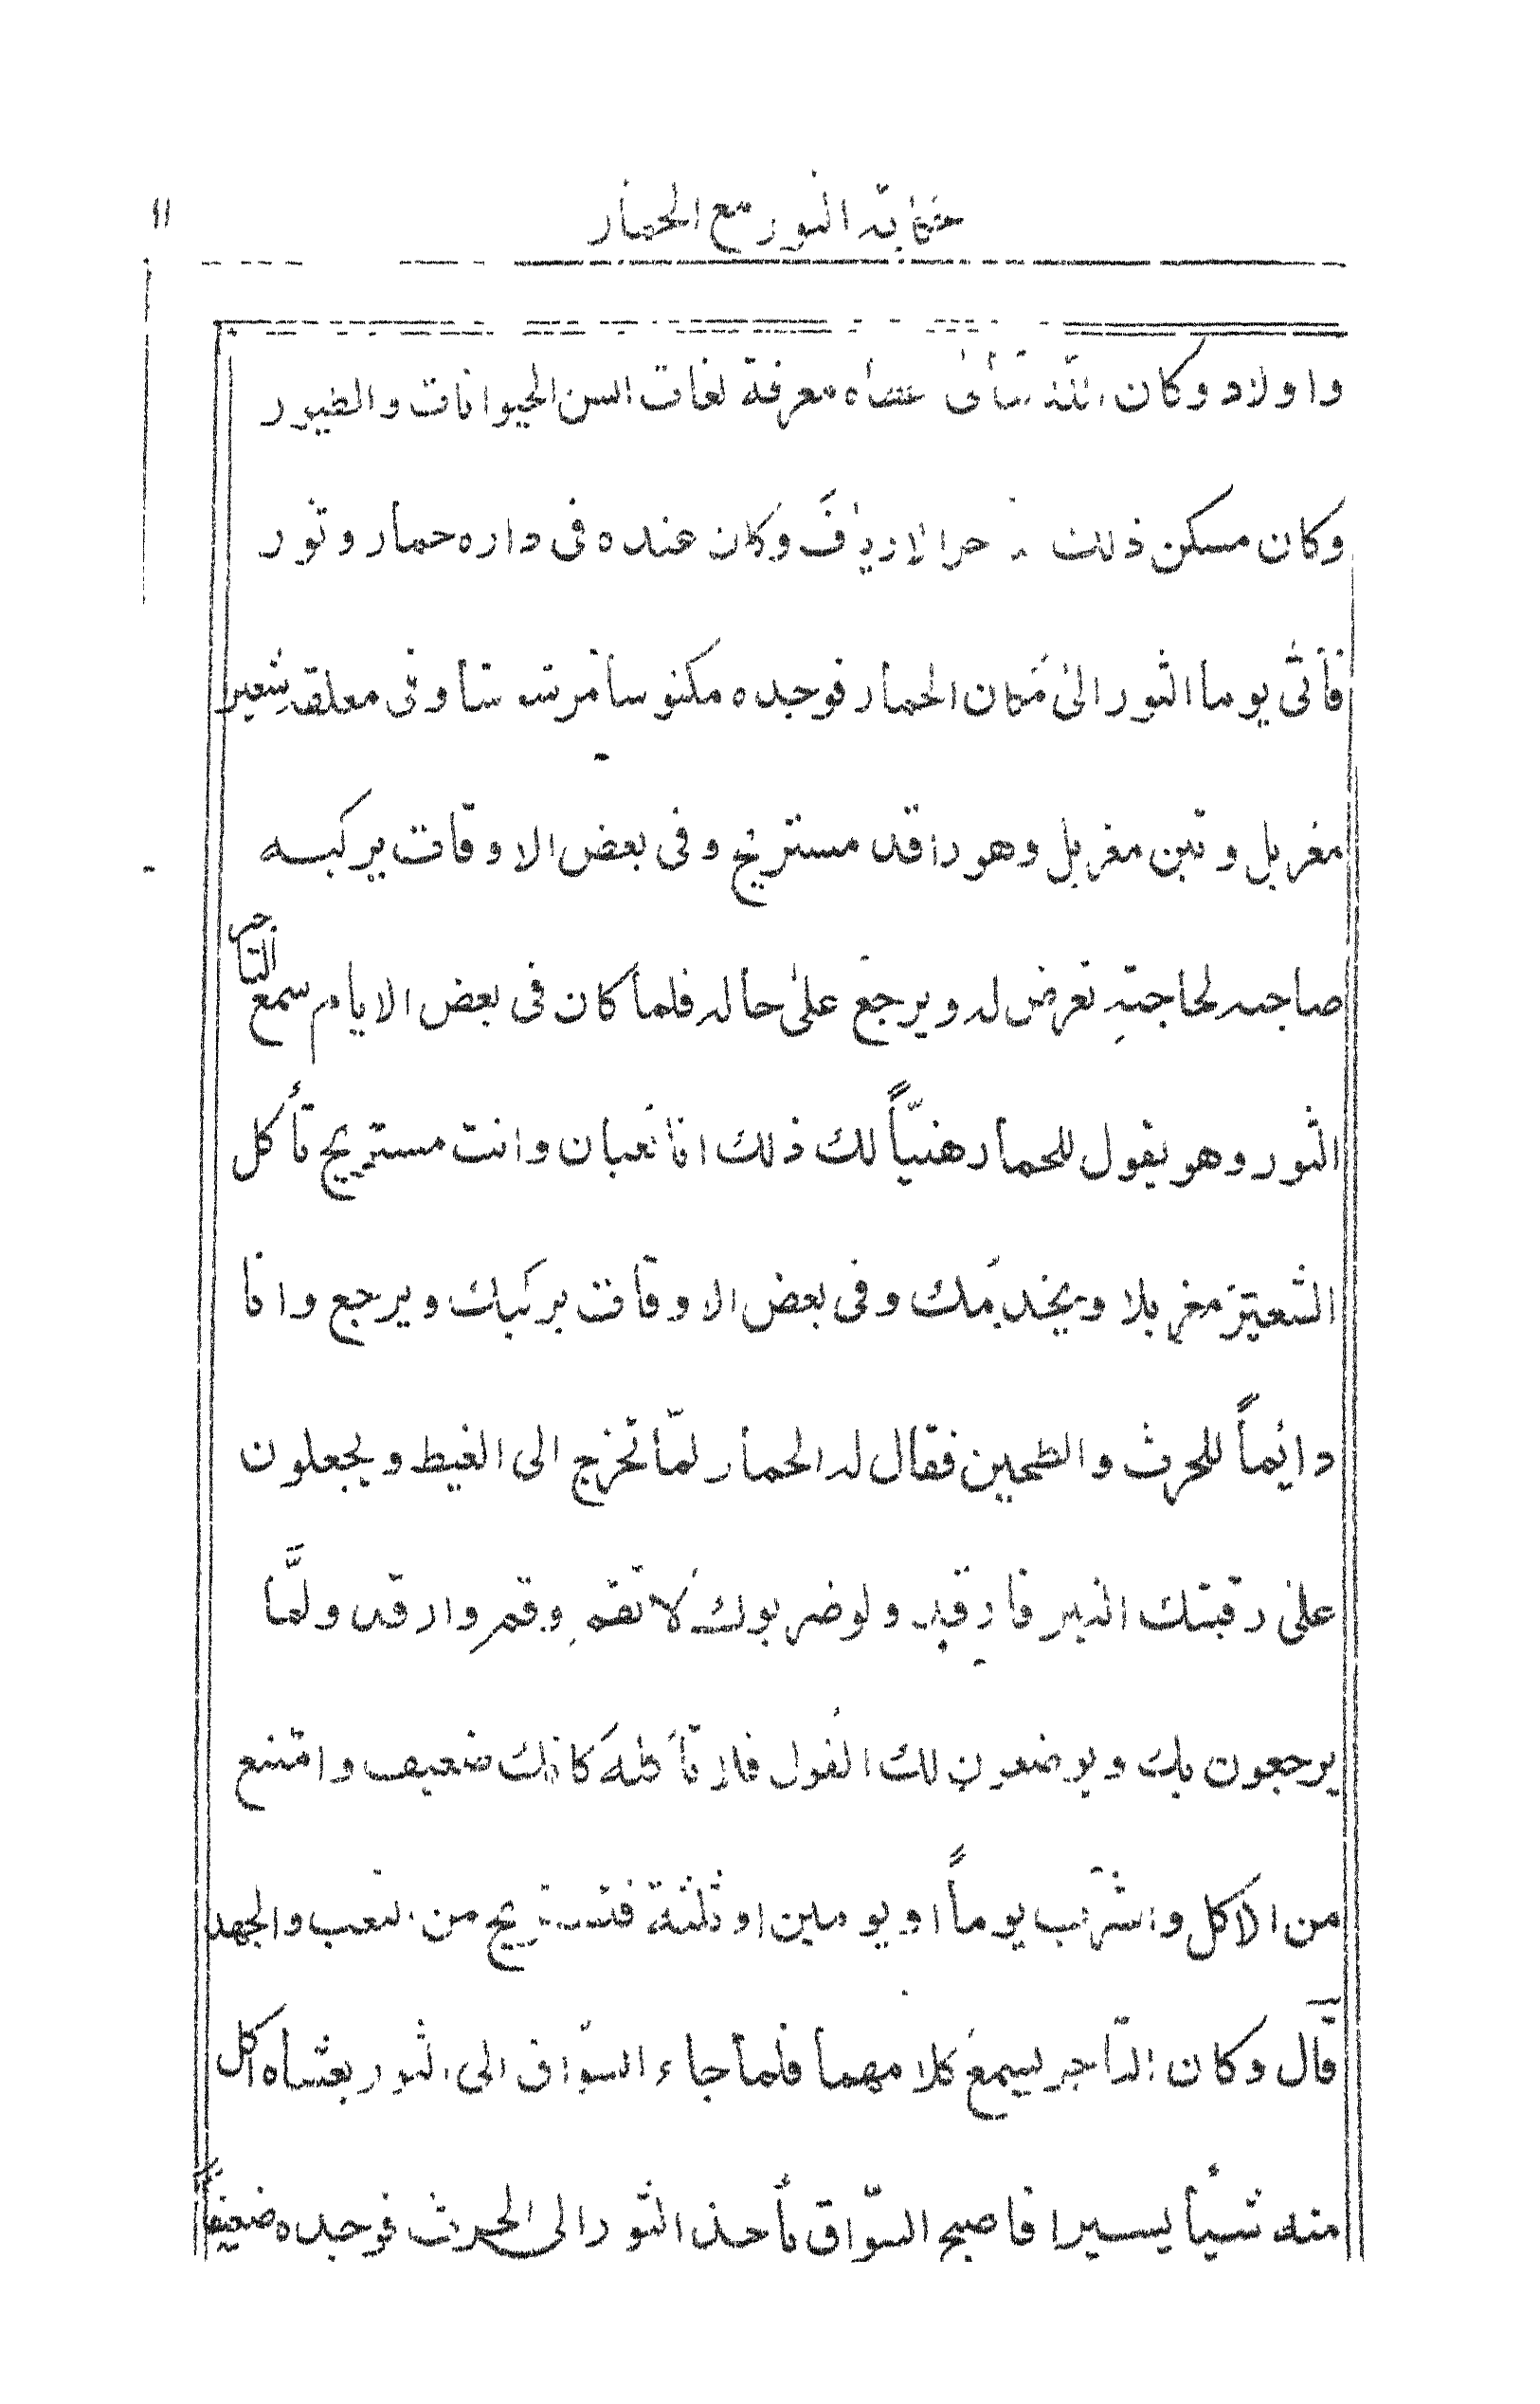 حكاية الثور مع الحمار ١١
واولاد وكان الله تعالى اعطاه معرفة لغات السن الحيوانات والطيور
وكان مسكن ذلك الارياف وكان عنده فى داره حمار وثور
فأتى يوما الثور الى مكان الحمار فوجده مكنوسا مرشوشا وفى معلفه شعير
مغربل وتبن مغربل وهو راقد مستريح وفى بعض الاوقات يركبه
صاحبه لحاجته تعرض له ويرجع على حاله فلما كان فى بعض الايام سمع التاجر
الثور وهو يقول للحمار هنيّاً لك ذلك انا تعبان وانت مستريح تأكل
الشعير مغربلا ويخدمك وفى بعض الاوقات يركبك ويرجع وانا
دايماً للحرث والطحين فقال له الحمار لمّا تخرج الى الغيط ويجعلون
على رقبتك النير فارقد ولو ضربوك لا تقم وقم وارقد ولمَّا
يرجعون بك ويوضعون لك الفول فلا تأكله كانك ضعيف وامتنع
من الاكل والشرب يوماً او يومين او ثلثة فتستريح من التعب والجهد
قال وكان التاجر يسمع كلامهما فلما جاء السوّاق الى الثور بعشاه اكل
منه شيأ يسيرا فاصبح السوّاق يأخذ الثور الى الحرث فوجده ضعيفاً